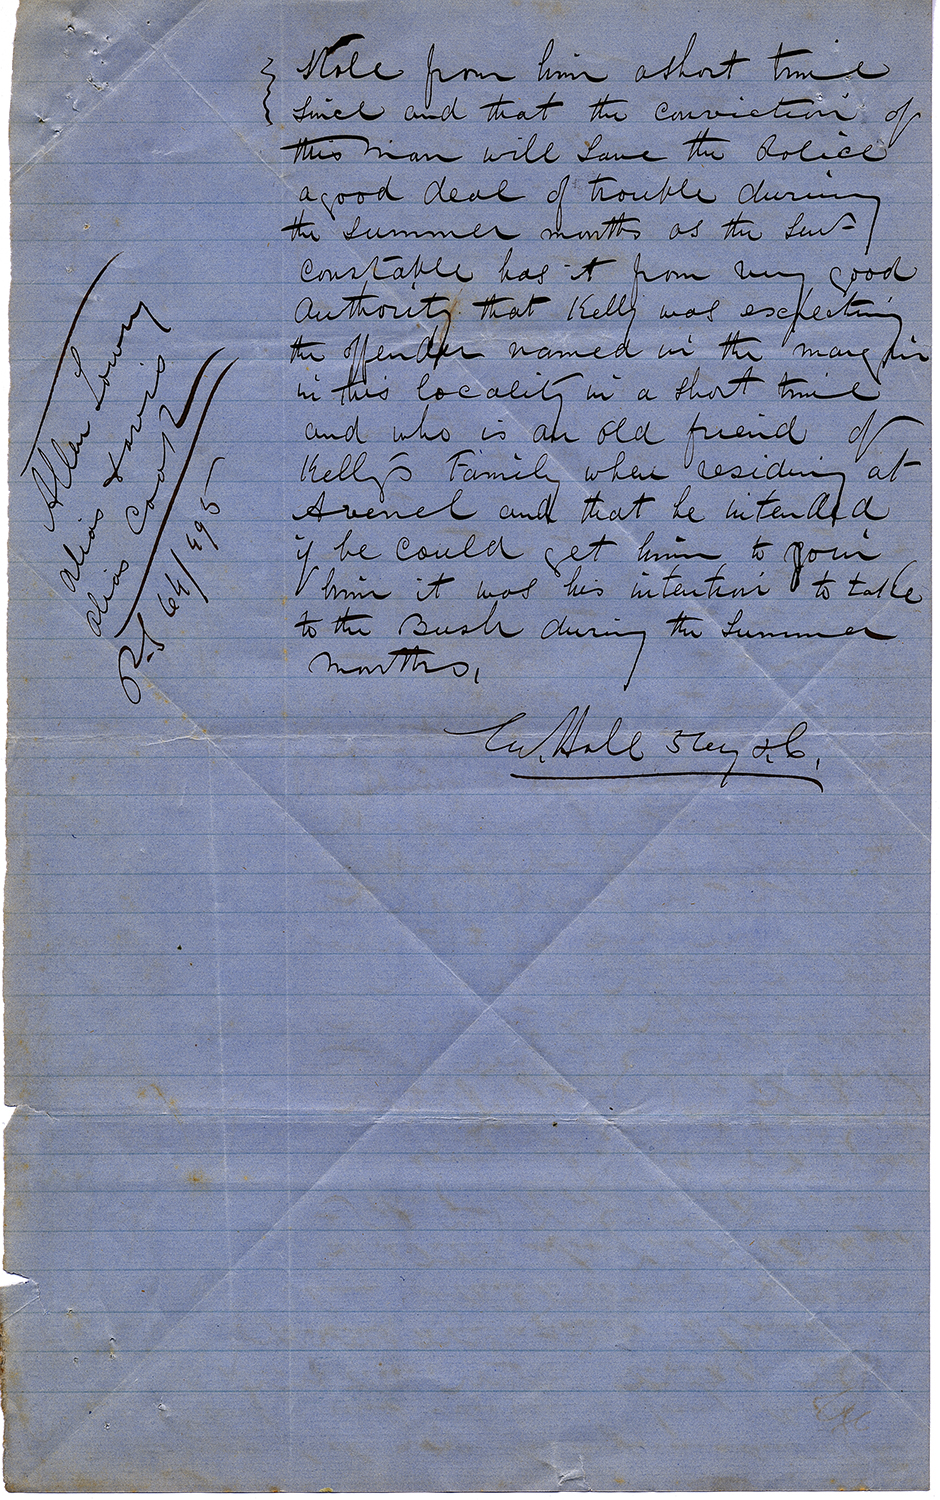 Stole from him a short time
since and that the conviction of
this man will save the Police
a good deal of trouble during
the summer months as the Senr
constable has it from very good
Authority that Kelly was expecting
the offender named in the margin
in this locality in a short time
and who is an old friend of
Kelly's Family when residing at
Avenel and that he intended
if he could get him to join
him it was his intention to take
to the Bush during the Summer
months,
Allen Lowry
alias
alias Cook
P.S 64/495
E W. Hall S C